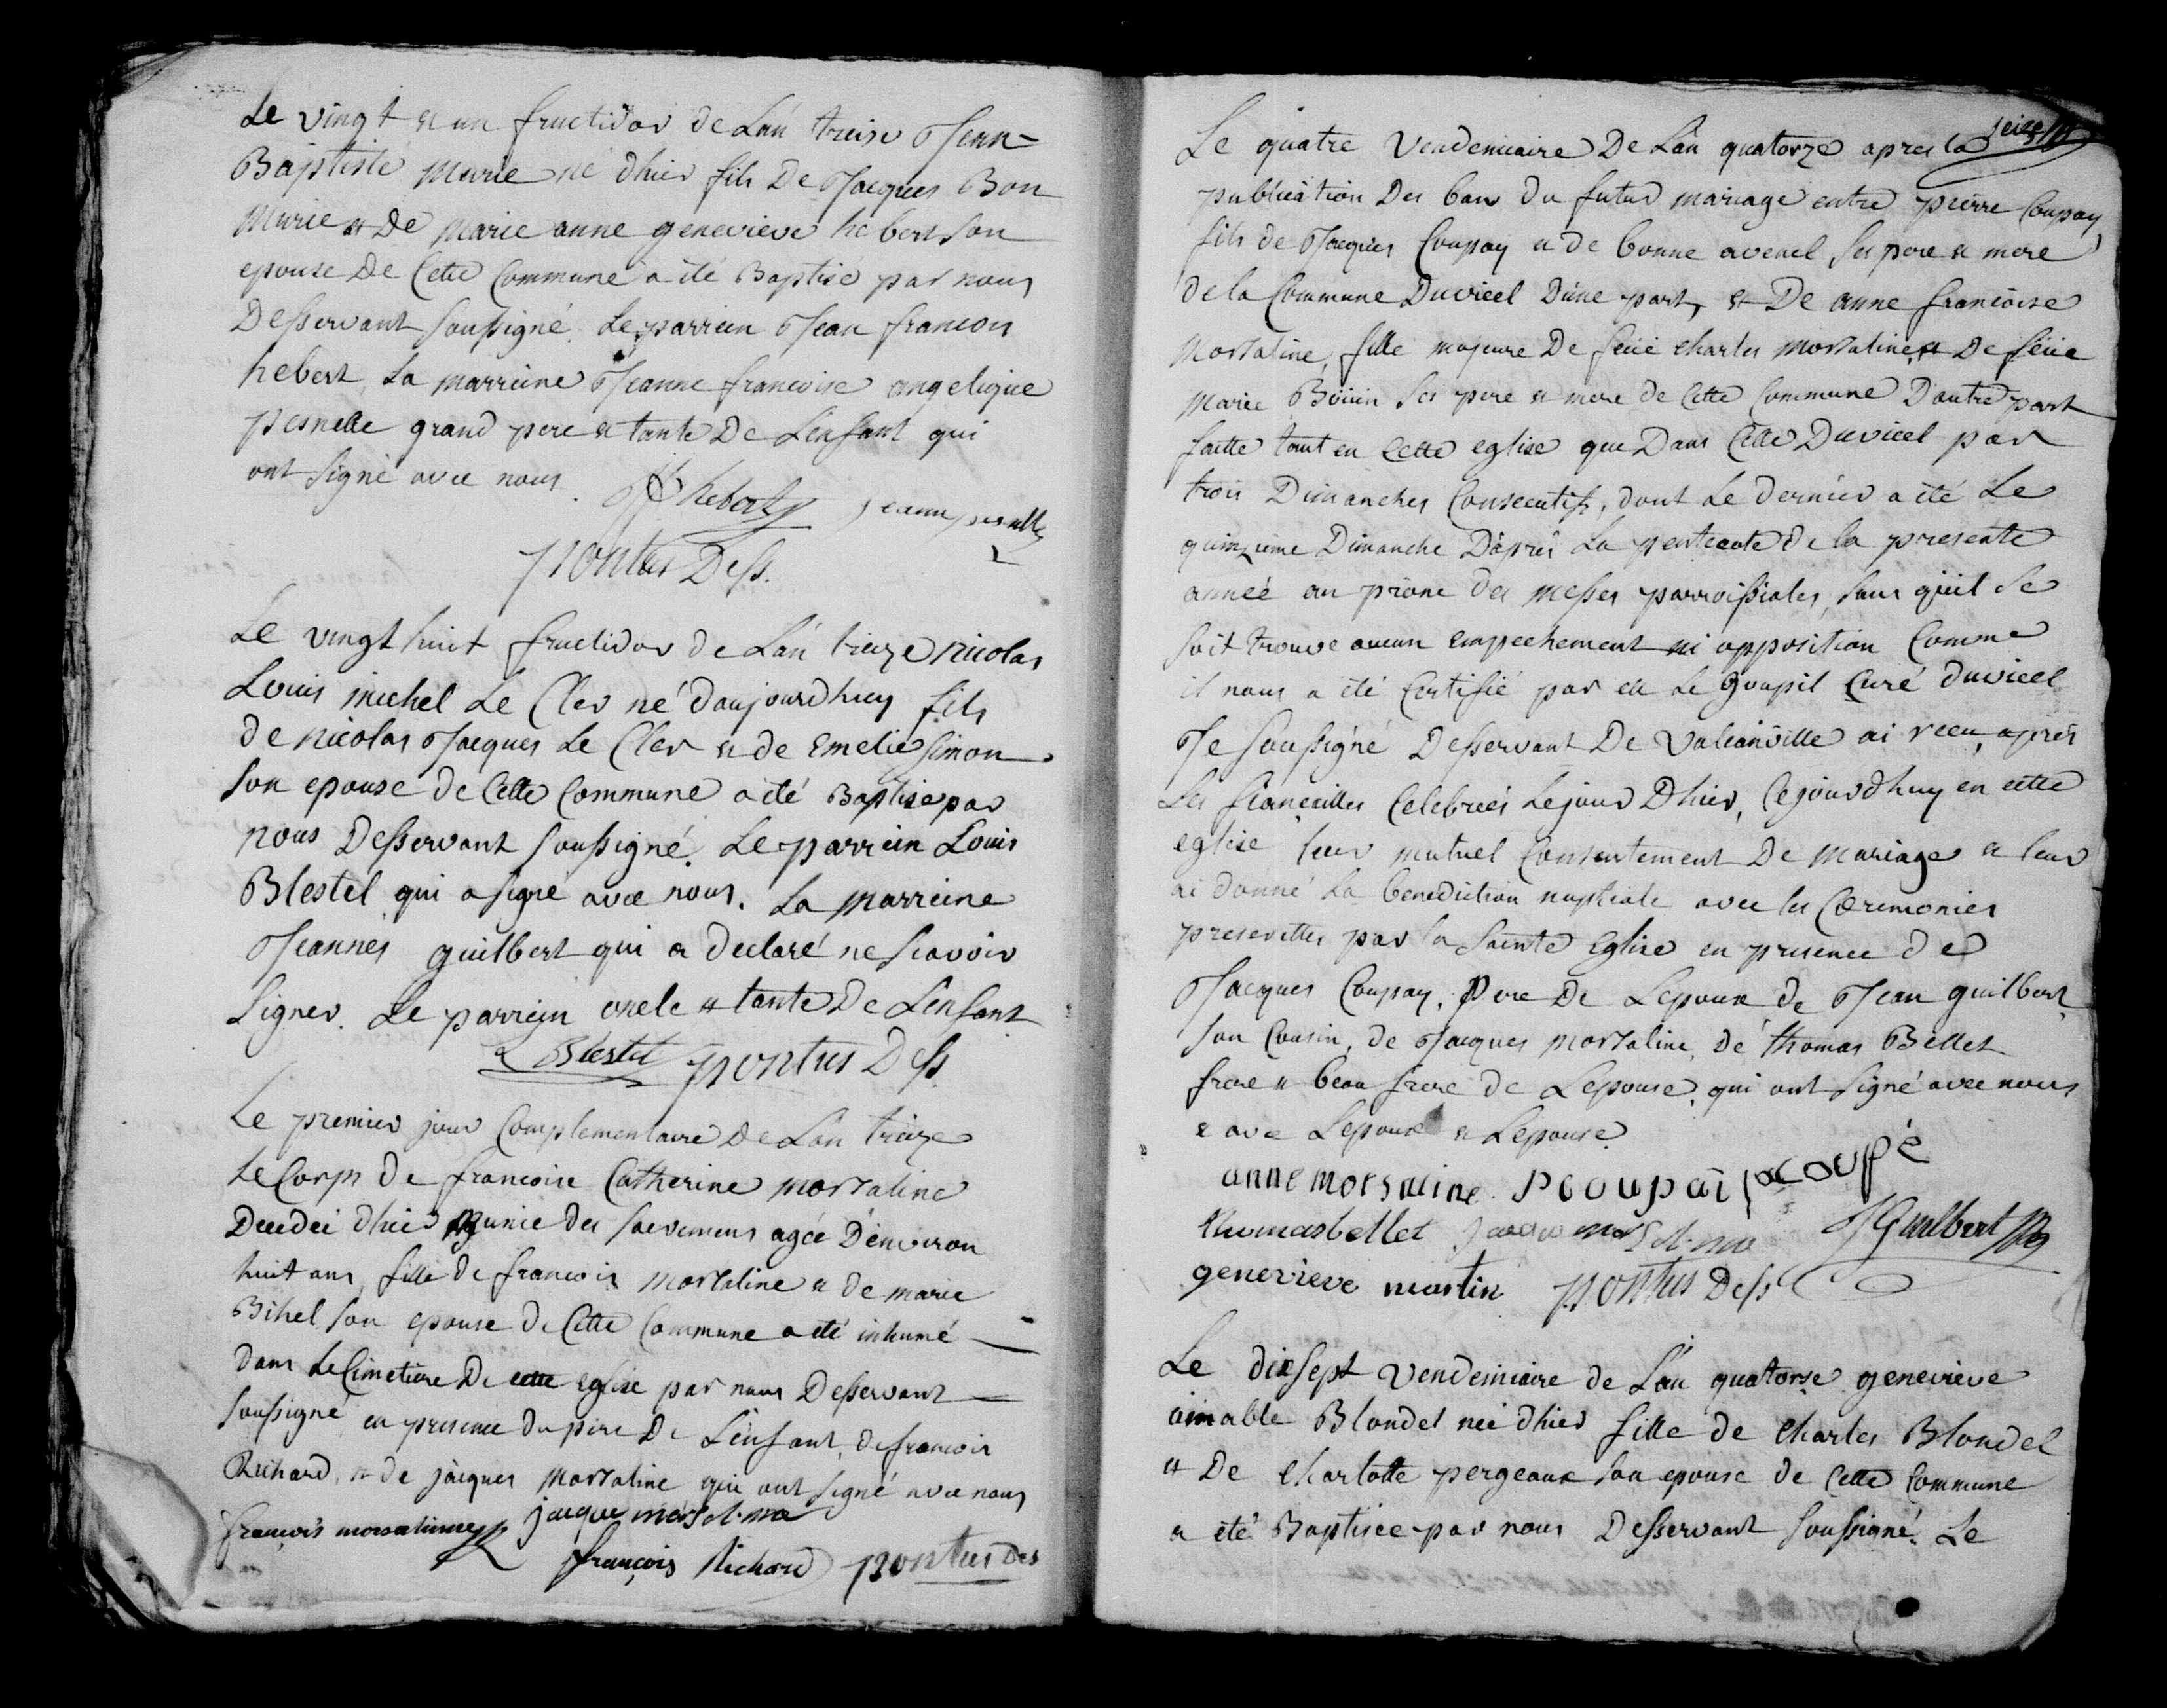 Le vingt et un fructidor de Lan treise Jean-
Baptiste Marie né dhier fils De Jacques Bon
Marie et De Marie anne genevieve hebert son
epouse De Cette Commune a été Baptisé par nous
Desservant soussigné. Le parrein Jean francois
hebert, La marreine Jeanne francoise angelique
pesnelle grand pere et tante De Lenfant qui
ont signé avec nous.
JF hebert jeanne pesnelle
pontus Dess.
Le vingt huit fructidor de Lan treize Nicolas
Louis michel Le Cler né daujourdhuy fils
de nicolas Jacques Le Cler et de Emelie Simon
son epouse de Cette Commune a été Baptisé par
nous Desservant soussigné. Le parrein Louis
Blestel qui a signé avec nous. La marreine
Jeanne guilbert qui a declaré ne scavoir
signer. Le parrein oncle et tante De Lenfant
Blestel pontus Dess
Le premier jour Complementaire De Lan treize
Le Corps de francoise Catherine Morsaline
Decedeé dhier munie des sacremens agée Denviron
huit ans, fille de francois Morsaline et de marie
Bihel son epouse de Cette Commune a été inhumé
dans Le Cimetiere De cette eglise par nous Desservant
soussigné en presence du pere De Lenfant, de francois
Richard, et de jacques Morsaline qui ont signé avec nous
francois morsaline jacque
françois Richard pontus Des
seize
Le quatre Vendemiaire De Lan quatorze apres la
publication Des bans du futur mariage entre pierre Coupay
fils de Jacques Coupay et de bonne avenel ses pere et mere
de la Commune Duvicel Dune part, et De anne francoise
Morsaline, fille majeure De feüe Charles Morsaline et De feüe
Marie Boüin ses pere et mere de Cette Commune Dautre part
faitte tant en Cette eglise que Dans Celle Duvicel par
trois Dimanches Consecutifs, dont Le dernier a été Le
quinzieme Dimanche Dapres La pentecote de la presente
année au prône des messes parroissiales, sans quil se
soit trouvé aucun empechement ni opposition Comme
il nous a été Certifié par Le Goupil Curé duvicel
Je soussigné Desservant De Valcanville ai recu, apres
Les fiancailles Celebreés Le jour Dhier, Cejourdhuy en cette
eglise leur mutuel Consentement De Mariage et leur
ai donné La benediction nuptiale avec les Ceremonies
prescrittes par la Sainte Eglise en presence de
Jacques Coupay, Pere De Lepoux de Jean guilbert
son Cousin, de Jacques Morsaline, de thomas Bellet
frere et beau frere de Lepouse, qui ont signé avec nous
et avec Lepoux et Lepouse.
anne morsaline. P coupai Ja coupé
thomas bellet J Guilbert
genevieve martin pontus Dess
Le dixsept Vendemiaire de Lan quatorse genevieve
aimable Blondel neé dhier fille de Charles Blondel
et De Charlotte pergeaux son epouse de Cette Commune
a été Baptisée par nous Desservant soussigné. Le